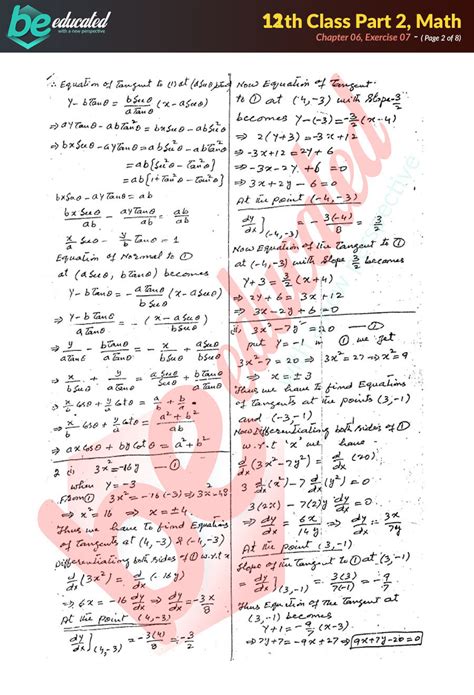 be educated
with a new perspective
12th Class Part 2, Math
Chapter 06, Exercise 07 - ( Page 2 of 8)
∴ Equation of tangent to (1) at (a Secθ, b tanθ)
y - b Tanθ = b Secθ / a Tanθ (x - a Secθ)
⇒ ay Tanθ - ab Tan²θ = bx Secθ - ab Sec²θ
⇒ bx Secθ - ay Tanθ = ab Sec²θ - ab Tan²θ
= ab[Sec²θ - Tan²θ]
= ab[1 + Tan²θ - Tan²θ]
bx Secθ - ay Tanθ = ab
bx Secθ / ab - ay Tanθ / ab = ab / ab
x/a Secθ - y/b Tanθ = 1
Equation of Normal to ①
at (a Secθ, b Tanθ) becomes
y - b Tanθ = - a Tanθ / b Secθ (x - a Secθ)
⇒ y - b Tanθ / a Tanθ = - (x - a Secθ) / b Secθ
⇒ y / a Tanθ - b Tanθ / a Tanθ = - x / b Secθ + a Secθ / b Secθ
⇒ x / b Secθ + y / a Tanθ = a/b + b/a
⇒ x/b Cosθ + y/a Cotθ = a² + b² / ab
⇒ ax Cosθ + by Cotθ = a² + b²
2 (i) 3x² = -16y — ①
when y = -3
From ① 3x² = -16(-3) ⇒ 3x² = 48
⇒ x² = 16 ⇒ x = ±4.
Thus we have to find Equations
of tangents at (4, -3) & (-4, -3)
Differentiating both sides of ① w.r.t x
d/dx (3x²) = d/dx (-16y)
⇒ 6x = -16 dy/dx ⇒ dy/dx = -3x/8
At the point (4, -3)
dy/dx](4, -3) = -3(4)/8 = -3/2
Now Equation of Tangent
to ① at (4, -3) with Slope -3/2
becomes y - (-3) = -3/2 (x - 4)
⇒ 2(y + 3) = -3x + 12
⇒ -3x + 12 = 2y + 6
⇒ -3x - 2y + 6 = 0
⇒ 3x + 2y - 6 = 0
At the point (-4, -3)
dy/dx](-4, -3) = -3(-4)/8 = 3/2
Now Equation of the Tangent to ①
at (-4, -3) with Slope 3/2 becomes
y + 3 = 3/2 (x + 4)
⇒ 2y + 6 = 3x + 12
⇒ 3x - 2y + 6 = 0
(ii) 3x² - 7y² = 20 — ①
put y = -1 in ① we get
3x² - 7 = 20 ⇒ 3x² = 27 ⇒ x² = 9
⇒ x = ±3
Thus we have to find Equations
of tangents at the points (3, -1)
and (-3, -1)
Now Differentiating both sides of ①
w.r.t 'x' we have
d/dx (3x² - 7y²) = d/dx (20)
3 d/dx (x²) - 7 d/dx (y²) = 0
3(2x) - 7(2y) dy/dx = 0
⇒ dy/dx = 6x/14y ⇒ dy/dx = 3x/7y
At the point (3, -1)
Slope of the tangent to ① at (3, -1)
= dy/dx](3, -1) = 3(3)/7(-1) = -9/7
Thus Equation of the Tangent at
(3, -1) becomes
y + 1 = -9/7 (x - 3)
⇒ 7y + 7 = -9x + 27 ⇒ 9x + 7y - 20 = 0